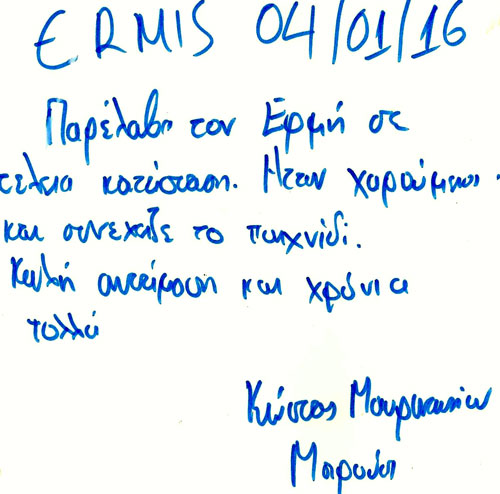 ERMIS 04/01/16
Παρέλαβα τον Ερμή σε
τέλεια κατάσταση. Ήταν χαρούμενος
και συνέχιζε το παιχνίδι.
Καλή αντάμωση και χρόνια
πολλά
Κώστας
Μαρούσι